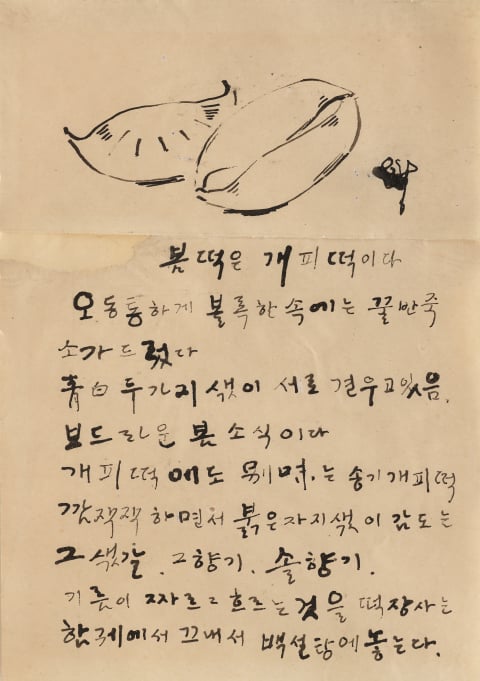 봄떡은 개피떡이다
오동통하게 볼록한 속에는 꿀반죽
소가 드렀다
青白 두가지 색이 서로 견우고있음.
보드라운 봄소식이다
개피떡에도 別味.는 송기개피떡
깜작작 하면서 붉은자지색이 감도는
그 색갈. 그향기. 솔향기.
기름이 짜르르흐르는것을 떡장사는
함께에서 끄내서 백설탕에놓는다.